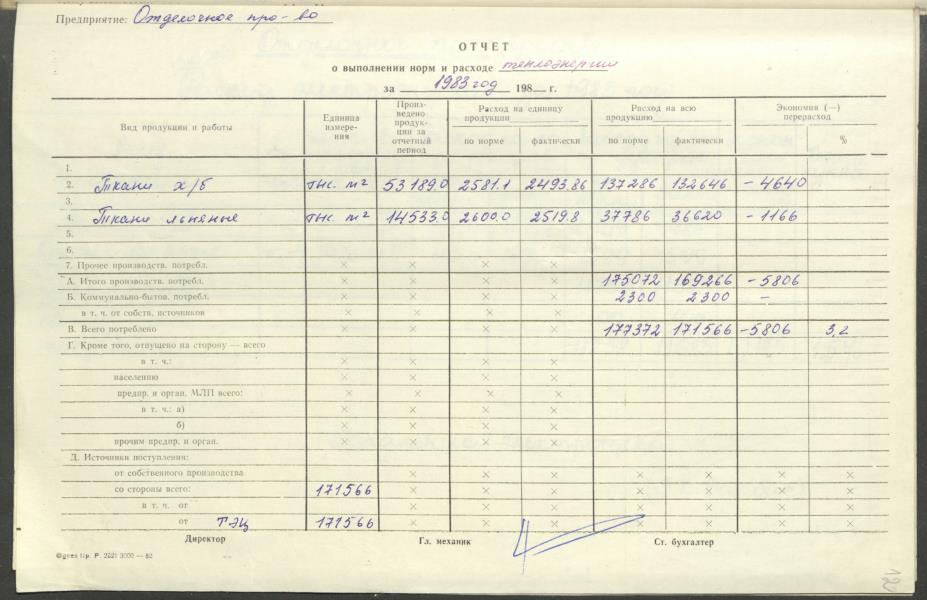 Предприятие: Отделочное про-во
ОТЧЕТ
о выполнении норм и расходе теплоэнергии
за 1983 год 198 г.
Вид продукции и работы
Единица измере-ния
Произ-ведено продук-ции за отчетный период
Расход на единицу продукции
по норме фактически
Расход на всю продукцию
по норме фактически
Экономия (—) перерасход
%
1.
2. Ткани х/б тыс. м² 53189.0 2581.1 2493.86 137286 132646 - 4640
3.
4. Ткани льняные тыс. м² 14533.0 2600.0 2519.8 37786 36620 - 1166
5.
6.
7. Прочее производств. потребл. × × × ×
А. Итого производств. потребл. × × × × 175072 169266 - 5806
Б. Коммунально-бытов. потребл. × × × × 2300 2300 -
в т. ч. от собств. источников × × × ×
В. Всего потреблено × × × × 177372 171566 -5806 3,2
Г. Кроме того, отпущено на сторону — всего
в т. ч.: × × × ×
населению × × × ×
предпр. и орган. МЛП всего: × × × ×
в т. ч.: а) × × × ×
б) × × × ×
прочим предпр. и орган. × × × ×
Д. Источники поступления:
от собственного производства × × × × × × ×
со стороны всего: 171566 × × × × × × ×
в т. ч. от × × × × × × ×
от ТЭЦ 171566 × × × × × × ×
Директор Гл. механик Ст. бухгалтер
3000 — 82
12